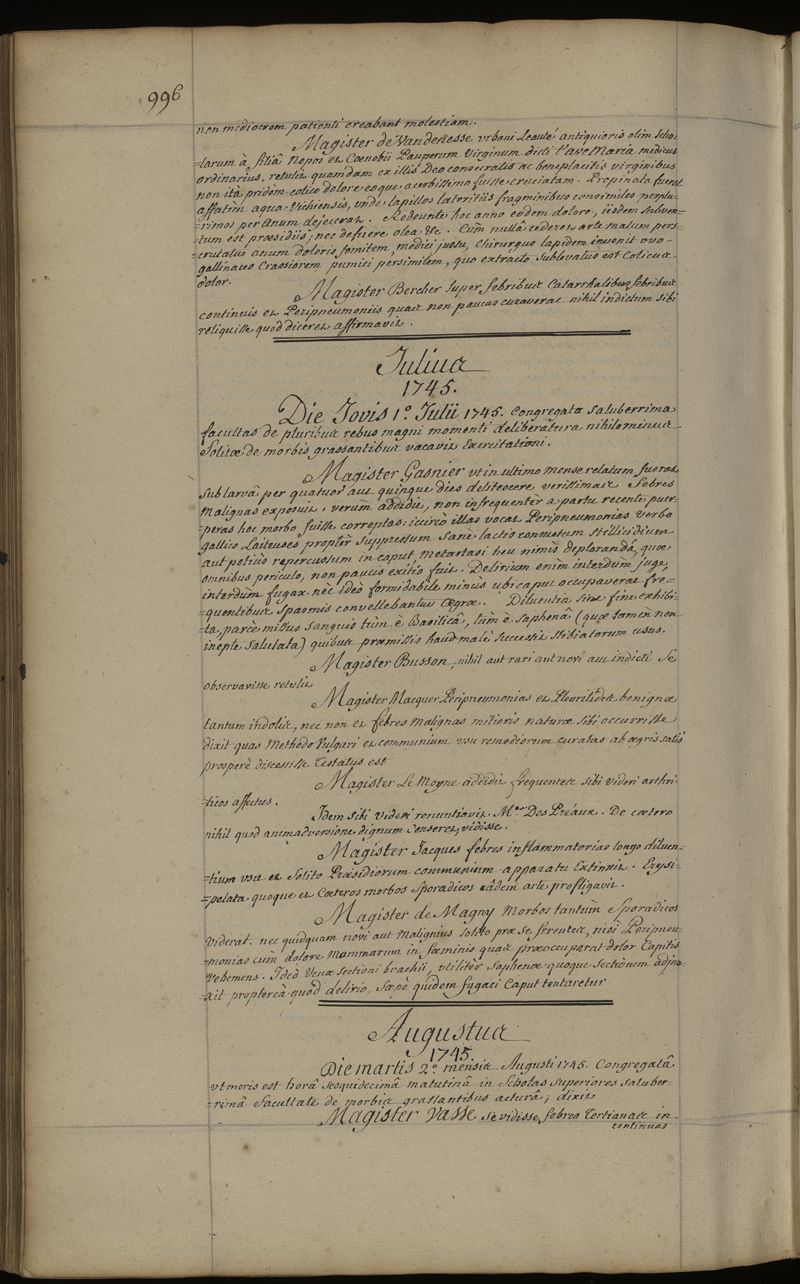 996
non mediocrem patienti creabant molestiam.
Magister de Vandenesse urbani Leauté antiquioris olim scho-
=larum à filiâ Nepos et Coenobii Pauperum Virginum dicti l'ave Maria medicus
ordinarius, retulit quamdam ex illis Deo consecratis ac beneplacitis virginibus
non ità pridem colico dolore eoque acerbissimo fuisse cruciatam. Propinata fuerat
affatim aqua Vichiensis, unde lapillos lateritiis fragminibus consimiles perplu-
=rimos per anum dejecerat. Redeunte hoc anno eodem dolore, iisdem subven-
tum est praesidiis; nec defuere olea &c. Cum nullâ cederet arte malum pers-
=crutatus anum doloris fomitem, medici jussu, chirurgus lapidem invenit ovo
gallinaceo Crassiorem pumici persimilem, quo extracto sublevatus est Colicus
dolor.
Magister Bercher super febribus Catarrhalibus febribus
continuis et Peripneumoniis quas non paucas curaverat nihil indictum sibi
reliquisse quod diceret affirmavit.
Julius
1745.
Die Jovis 1º. Julii 1745. Congregata saluberrima
facultas de pluribus rebus magni momenti deliberatura nihilominus
Solitae de morbis grassantibus vacavit Exercitationi.
Magister Gasnier ut in ultimo mense relatum fuerat
sub larvâ per quatuor aut quinque dies delitescere verissimas febres
malignas exposuit, verùm addidit, non infrequenter a partu recente puer-
peras hoc morbo fuisse correptas. iccircò illas vocat Peripneumonias verbo
gallico Laiteuses propter suppressum sane lactis connatum stillicidium
aut potius repercussum in caput metastasi heu nimis deplorandâ, quae
omnibus periculo, non paucis exitio fuit. Delirium enim interdum juge,
interdum fugax nec ideò formidabile minùs ubi caput occupaverat fre-
=quentibus spasmis convellebantur aegrae. Diluentia sine fine exhibi-
ta, parcè missus sanguis tùm è Basilicâ, tùm è saphenâ (quae tamen non
ineptè salutata) quibus praemissis haud malè successit stibiatorum usus.
Magister Busson, nihil aut rari aut novi aut indicti se
observavisse retulit
Magister Macquer Peripneumonias et Pleuritides benignae
tantum indolis, nec non et febres malignas mitioris naturae sibi occurrisse
dixit quas Methodo Vulgari et communium usu remediorum curatas ab aegris satis
prosperè discessisse testatus est
Magister Le Moyne addidit frequentes sibi videri arthri-
=ticos affectus.
Idem sibi videri renuntiavit Mer. Des Préaux. De caetero
nihil quod animadversione dignum censeret, vidisse.
Magister Jacques febres inflammatorias longo diluen-
=tium usu et solito Praesidiorum communium apparatu Extinxit. Erysi-
=pelata quoque et Caeteros morbos sporadicos eâdem arte profligavit.
Magister de Magny Morbos tantùm sporadicos
viderat. nec quidquam novi aut Malignius solito prae se ferentes, nisi Peripneu-
=monias cum dolore mammarum in faeminis quas praeoccuparat dolor Capitis
vehemens. Ideò Venae sectioni brachii, utiliter saphenae quoque sectionem adjun-
=xit proptereà quod delirio, saepè quidem fugaci Caput tentaretur
Augustus
1745.
Die martis 2º. mensis Augusti 1745. Congregatâ
ut moris est horâ sesquidecimâ matutinâ in scholas superiores saluber-
=rimâ facultate de morbis grassantibus acturâ; dixit
Magister Vasse se vidisse febres Tertianas in-
continuas